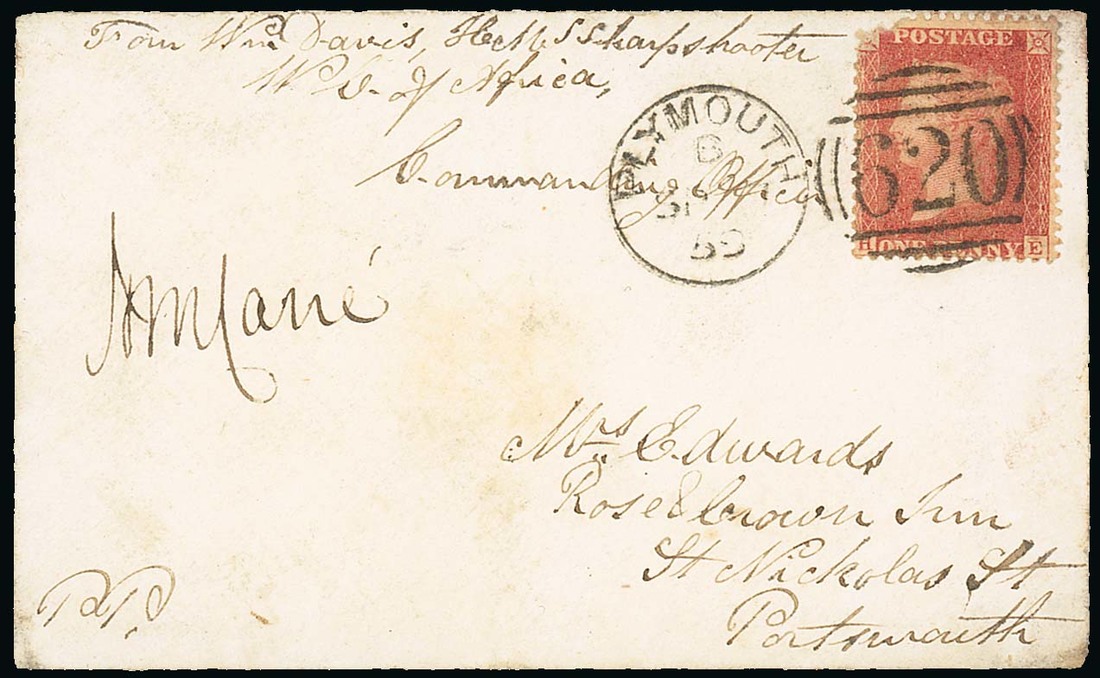 From Wm Davis, HMS Sharpshooter
W. C. of Africa,
Commanding Officer
PLYMOUTH
B
59
620
POSTAGE
H ONE PENNY E
HMCarré
Mrs Edwards
Rose & Crown Inn
St Nickolas St
Portsmouth